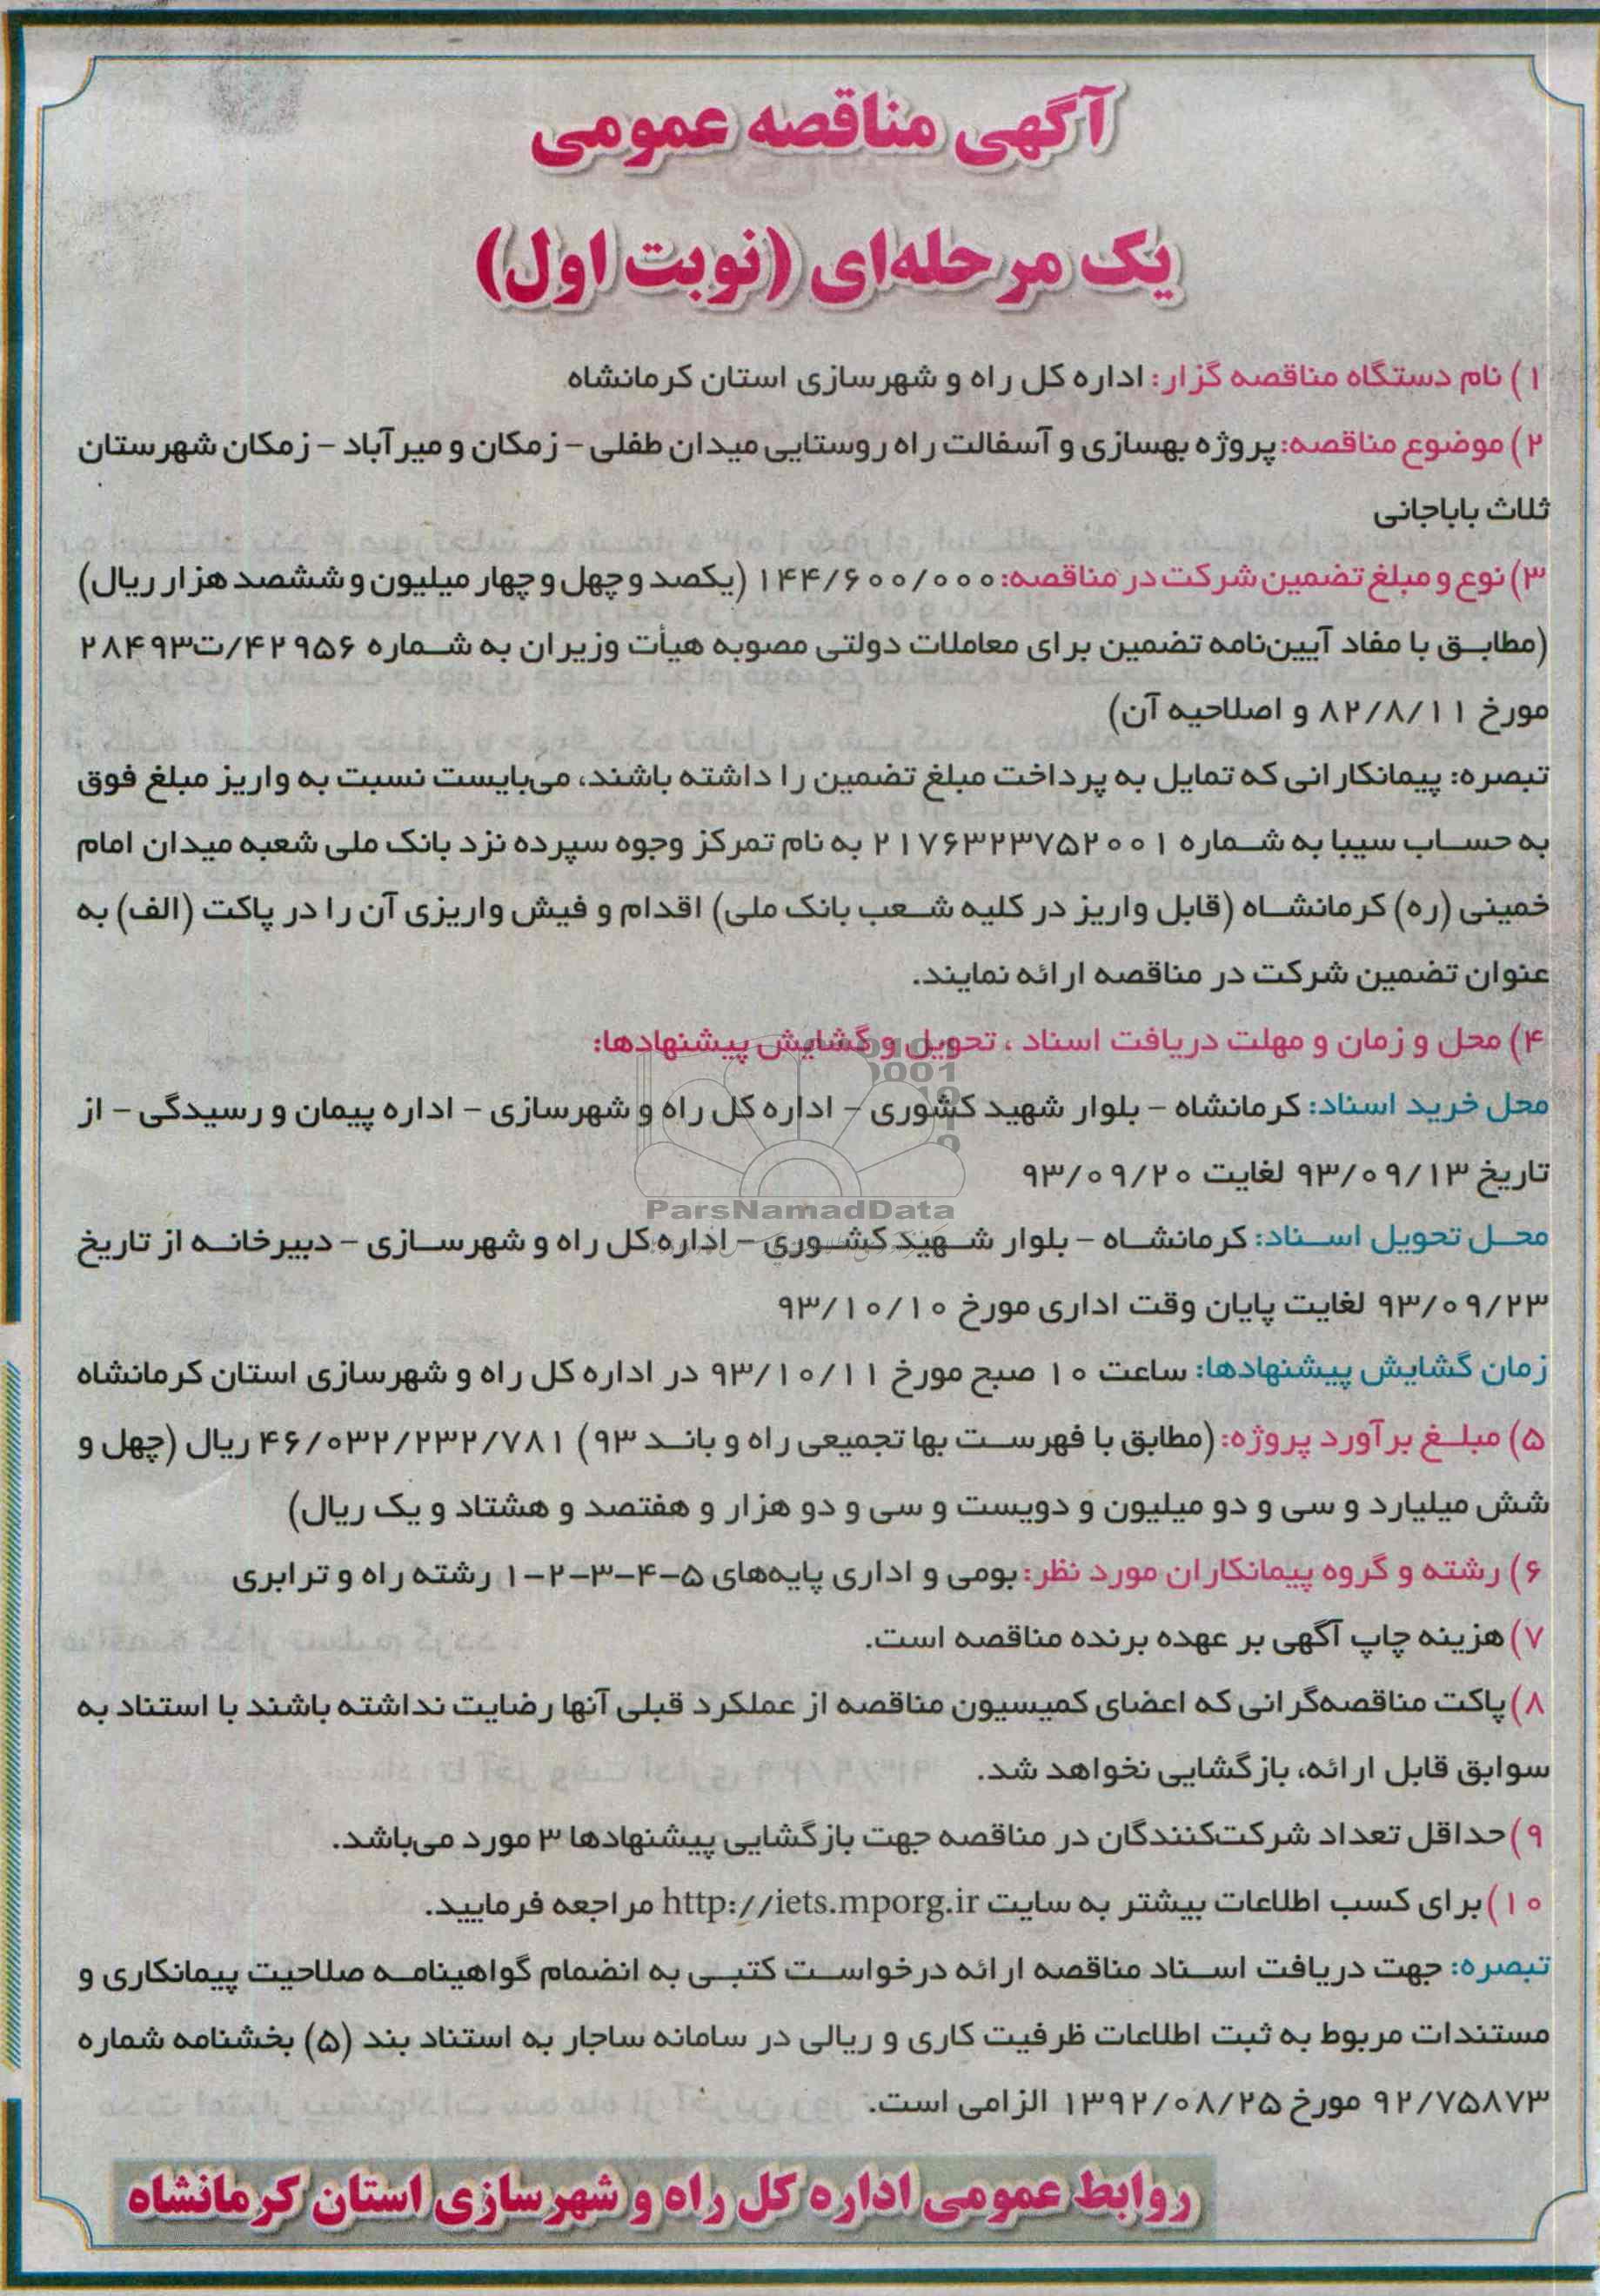 آگهی مناقصه عمومی
یک مرحله‌ای (نوبت اول)
۱) نام دستگاه مناقصه گزار: اداره کل راه و شهرسازی استان کرمانشاه
۲) موضوع مناقصه: پروژه بهسازی و آسفالت راه روستایی میدان طفلی – زمکان و میرآباد – زمکان شهرستان
ثلاث باباجانی
۳) نوع و مبلغ تضمین شرکت در مناقصه: ۱۴۴/۶۰۰/۰۰۰ (یکصد و چهل و چهار میلیون و ششصد هزار ریال)
(مطابق با مفاد آیین‌نامه تضمین برای معاملات دولتی مصوبه هیأت وزیران به شماره ۴۲۹۵۶/ت۲۸۴۹۳
مورخ ۸۲/۸/۱۱ و اصلاحیه آن)
تبصره: پیمانکارانی که تمایل به پرداخت مبلغ تضمین را داشته باشند، می‌بایست نسبت به واریز مبلغ فوق
به حساب سیبا به شماره ۲۱۷۶۳۲۳۷۵۲۰۰۱ به نام تمرکز وجوه سپرده نزد بانک ملی شعبه میدان امام
خمینی (ره) کرمانشاه (قابل واریز در کلیه شعب بانک ملی) اقدام و فیش واریزی آن را در پاکت (الف) به
عنوان تضمین شرکت در مناقصه ارائه نمایند.
۴) محل و زمان و مهلت دریافت اسناد ، تحویل و گشایش پیشنهادها:
محل خرید اسناد: کرمانشاه – بلوار شهید کشوری – اداره کل راه و شهرسازی – اداره پیمان و رسیدگی – از
تاریخ ۹۳/۰۹/۱۳ لغایت ۹۳/۰۹/۲۰
ParsNamadData
محل تحویل اسناد: کرمانشاه – بلوار شهید کشوری – اداره کل راه و شهرسازی – دبیرخانه از تاریخ
۹۳/۰۹/۲۳ لغایت پایان وقت اداری مورخ ۹۳/۱۰/۱۰
زمان گشایش پیشنهادها: ساعت ۱۰ صبح مورخ ۹۳/۱۰/۱۱ در اداره کل راه و شهرسازی استان کرمانشاه
۵) مبلغ برآورد پروژه: (مطابق با فهرست بها تجمیعی راه و باند ۹۳) ۴۶/۰۳۲/۲۳۲/۷۸۱ ریال (چهل و
شش میلیارد و سی و دو میلیون و دویست و سی و دو هزار و هفتصد و هشتاد و یک ریال)
۶) رشته و گروه پیمانکاران مورد نظر: بومی و اداری پایه‌های ۵–۴–۳–۲–۱ رشته راه و ترابری
۷) هزینه چاپ آگهی بر عهده برنده مناقصه است.
۸) پاکت مناقصه‌گرانی که اعضای کمیسیون مناقصه از عملکرد قبلی آنها رضایت نداشته باشند با استناد به
سوابق قابل ارائه، بازگشایی نخواهد شد.
۹) حداقل تعداد شرکت‌کنندگان در مناقصه جهت بازگشایی پیشنهادها ۳ مورد می‌باشد.
۱۰) برای کسب اطلاعات بیشتر به سایت http://iets.mporg.ir مراجعه فرمایید.
تبصره: جهت دریافت اسناد مناقصه ارائه درخواست کتبی به انضمام گواهینامه صلاحیت پیمانکاری و
مستندات مربوط به ثبت اطلاعات ظرفیت کاری و ریالی در سامانه ساجار به استناد بند (۵) بخشنامه شماره
۹۲/۷۵۸۷۳ مورخ ۱۳۹۲/۰۸/۲۵ الزامی است.
روابط عمومی اداره کل راه و شهرسازی استان کرمانشاه